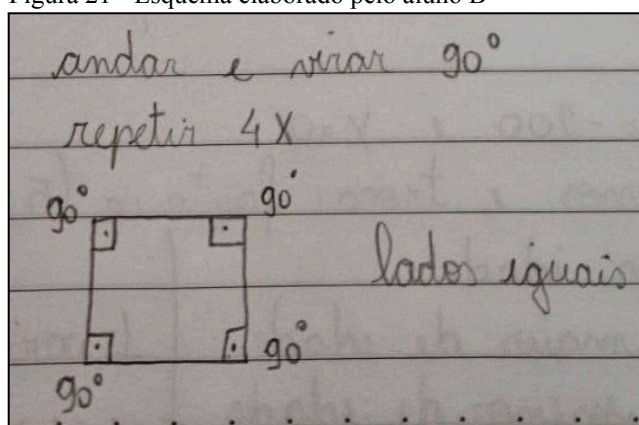 Figura 21 - Esquema elaborado pelo aluno B
andar e virar 90°
repetir 4X
90° 90°
lados iguais
90° 90°